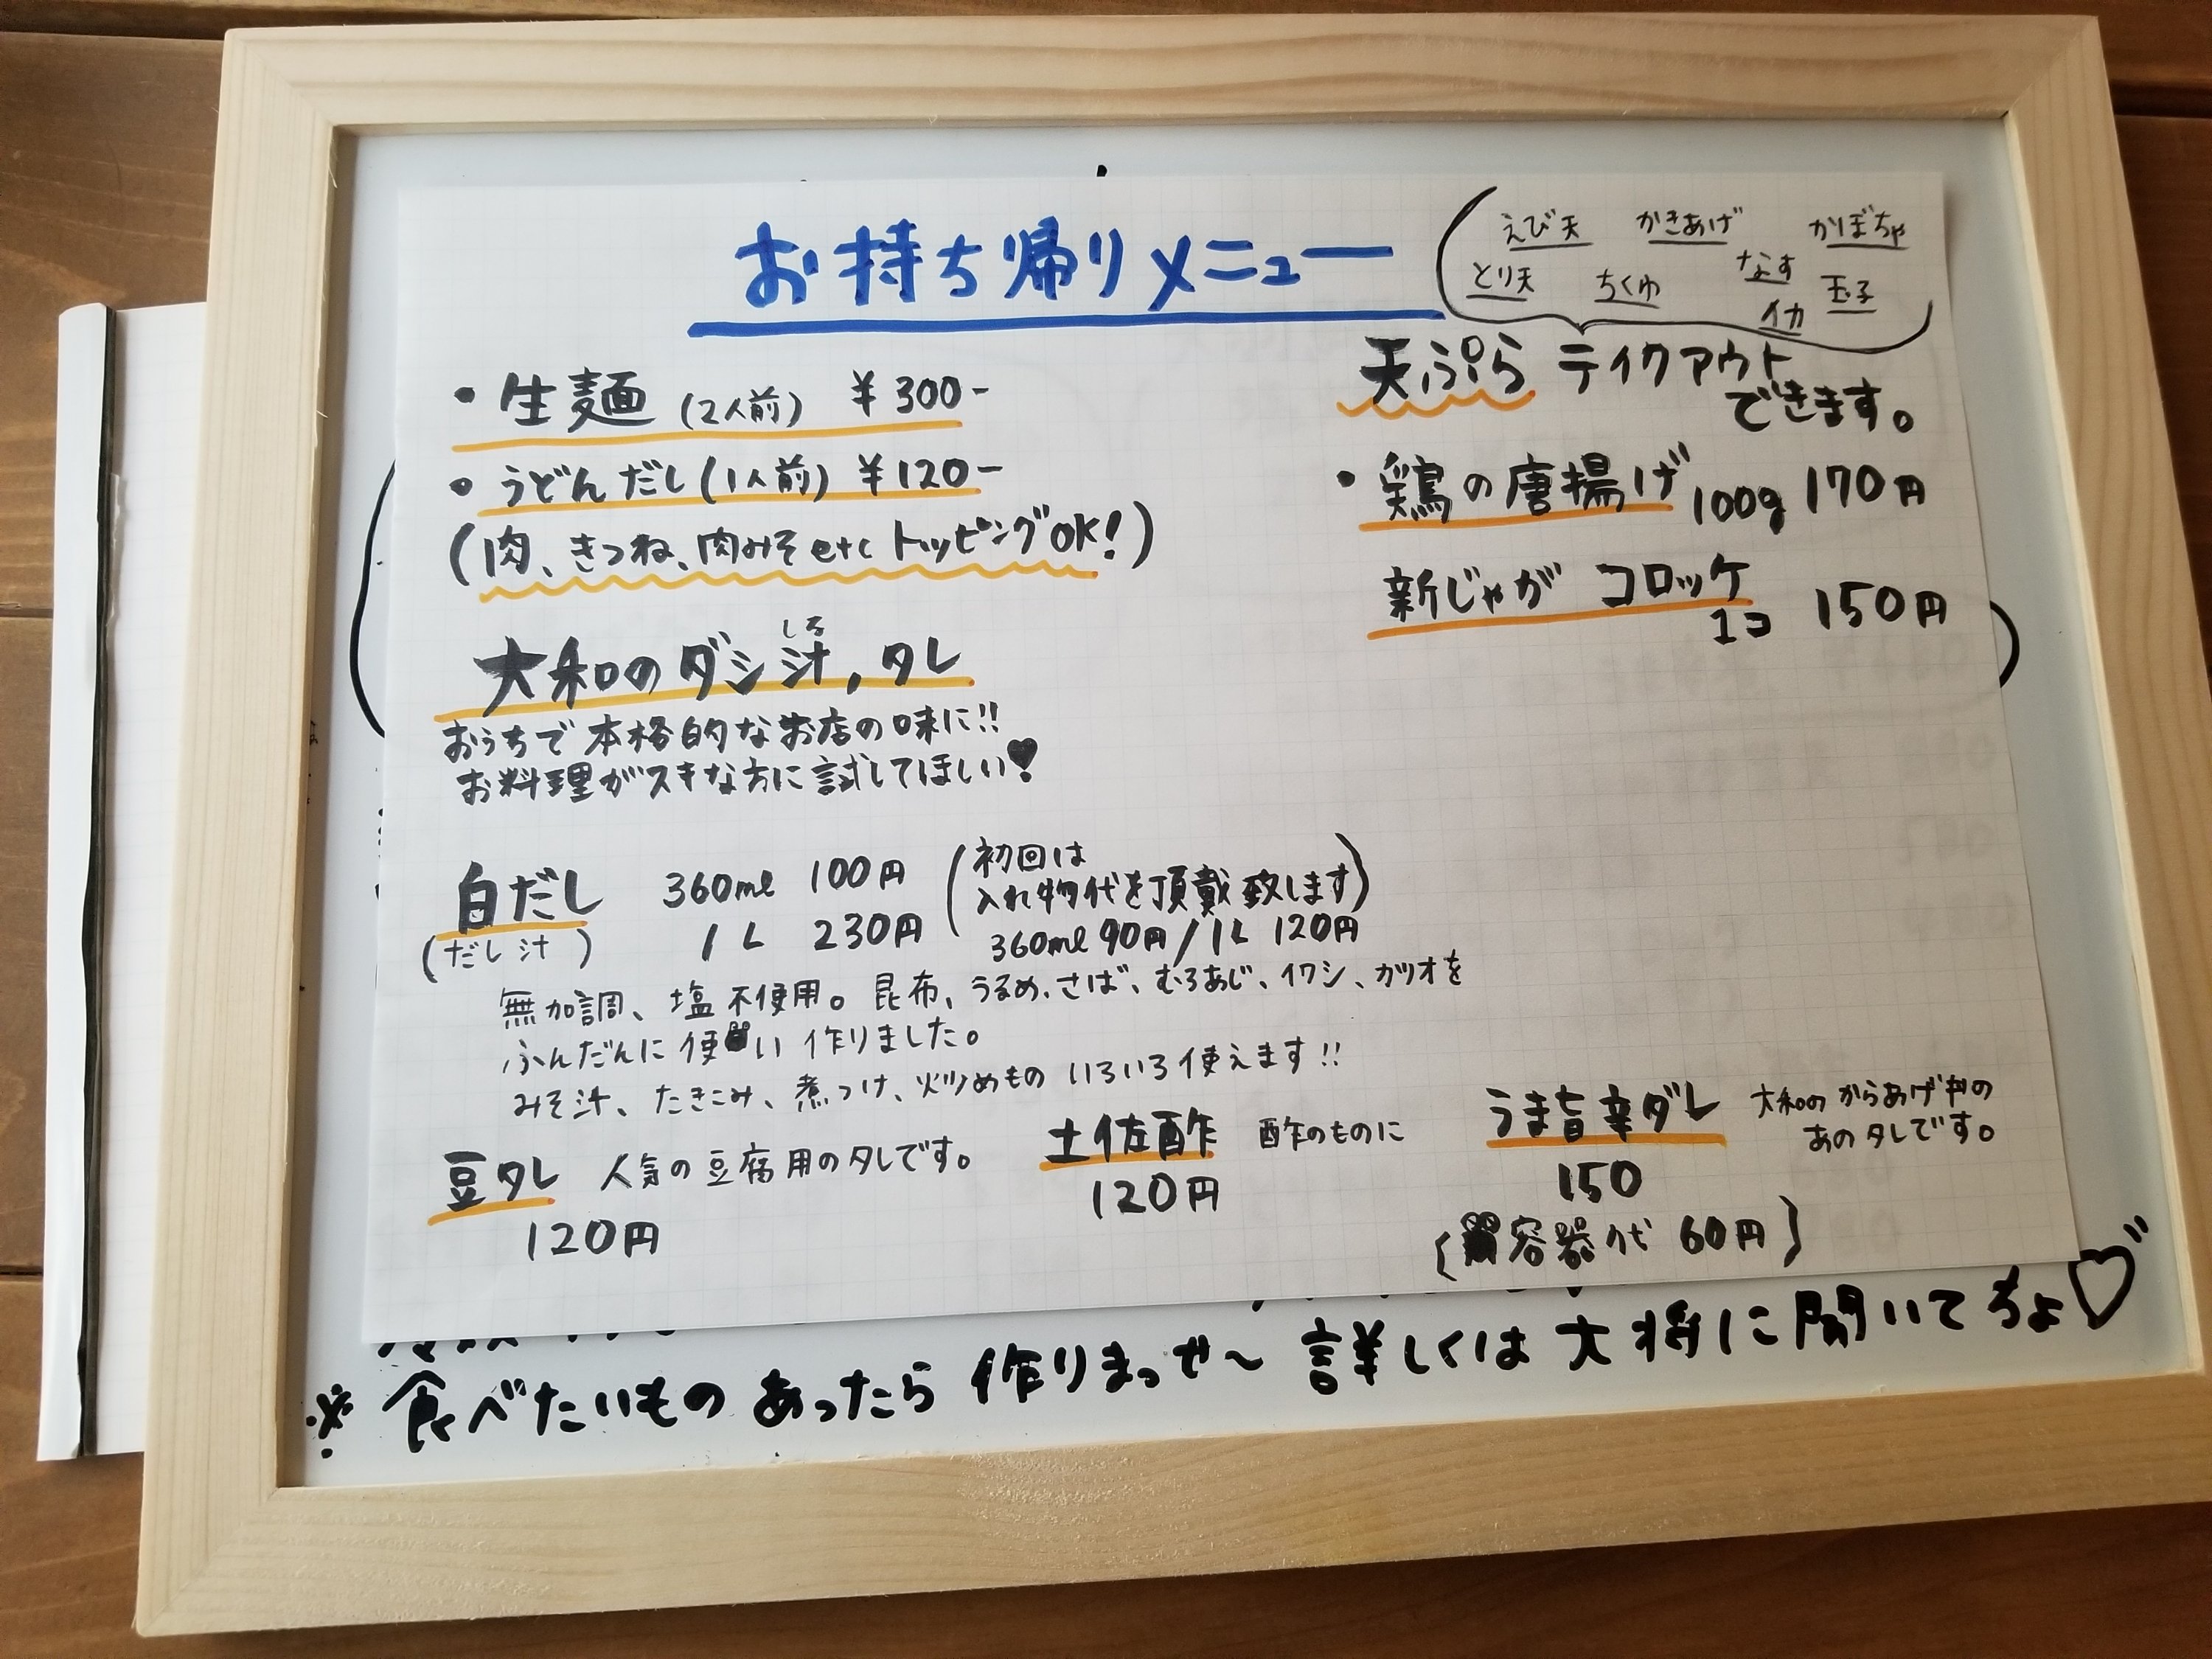 お持ち帰りメニュー
えび天 かきあげ かぼちゃ
とり天 ちくわ なす 玉子
イカ
・生麺 (2人前) ¥300-
・うどんだし(1人前) ¥120-
(肉、きつね、肉みそetcトッピングOK!)
天ぷら テイクアウト
できます。
・鶏の唐揚げ 100g 170円
新じゃが コロッケ
1コ 150円
しる
大和のダシ汁,タレ
おうちで本格的なお店の味に!!
お料理がスキな方に試してほしい♥
白だし 360ml 100円
(だし汁) 1L 230円
(初回は
入れ物代を頂戴致します)
360ml 90円/1L 120円
無加調、塩不使用。昆布、うるめ、さば、むろあじ、イワシ、カツオを
ふんだんに使い作りました。
みそ汁、たきこみ、煮つけ、炒めもの いろいろ使えます!!
豆タレ 人気の豆腐用のタレです。
120円
土佐酢 酢のものに
120円
うま旨辛ダレ 大和のからあげ丼の
あのタレです。
150
(容器代 60円)
※食べたいものあったら作りまっせ〜 詳しくは大将に聞いてちょ♡